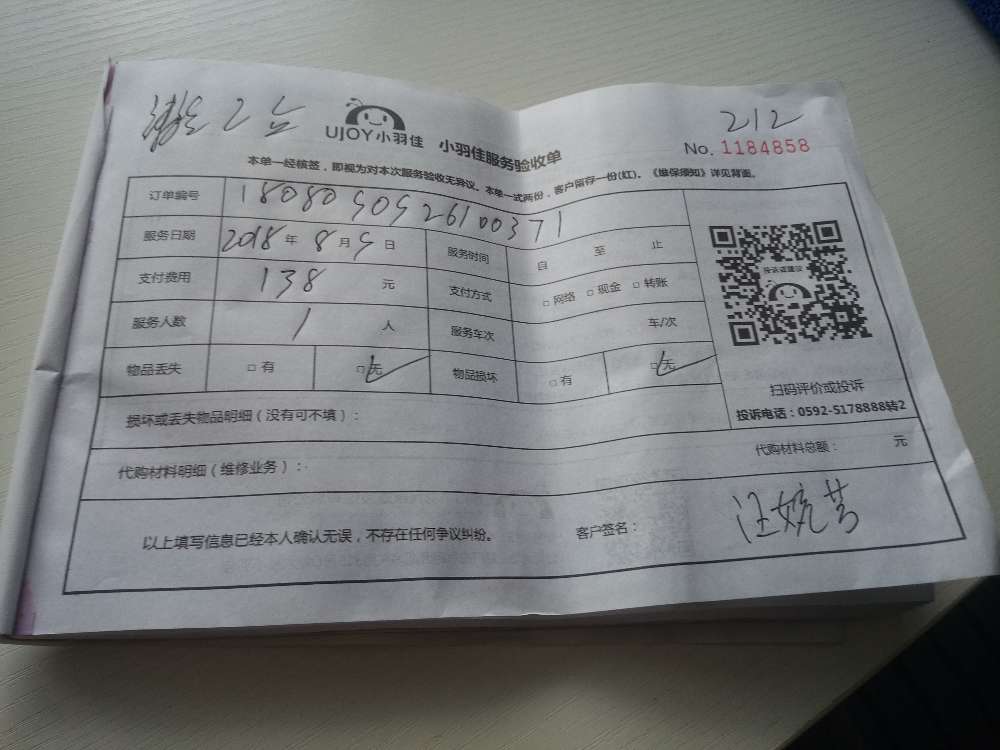 212
UJOY小羽佳 小羽佳服务验收单
No. 1184858
本单一经核签，即视为对本次服务验收无异议。本单一式两份，客户留存一份(红)。《维保须知》详见背面。
订单编号 18080909526100371
服务日期 2018年8月9日 服务时间 自 至 止
支付费用 138 元 支付方式 □ 网络 □ 现金 □ 转账
服务人数 1 人 服务车次 车/次
物品丢失 □ 有 □ 无 物品损坏 □ 有 □ 无
投诉或建议
扫码评价或投诉
投诉电话：0592-5178888转2
损坏或丢失物品明细（没有可不填）：
代购材料明细（维修业务）： 代购材料总额： 元
以上填写信息已经本人确认无误，不存在任何争议纠纷。 客户签名： 汪婉芳